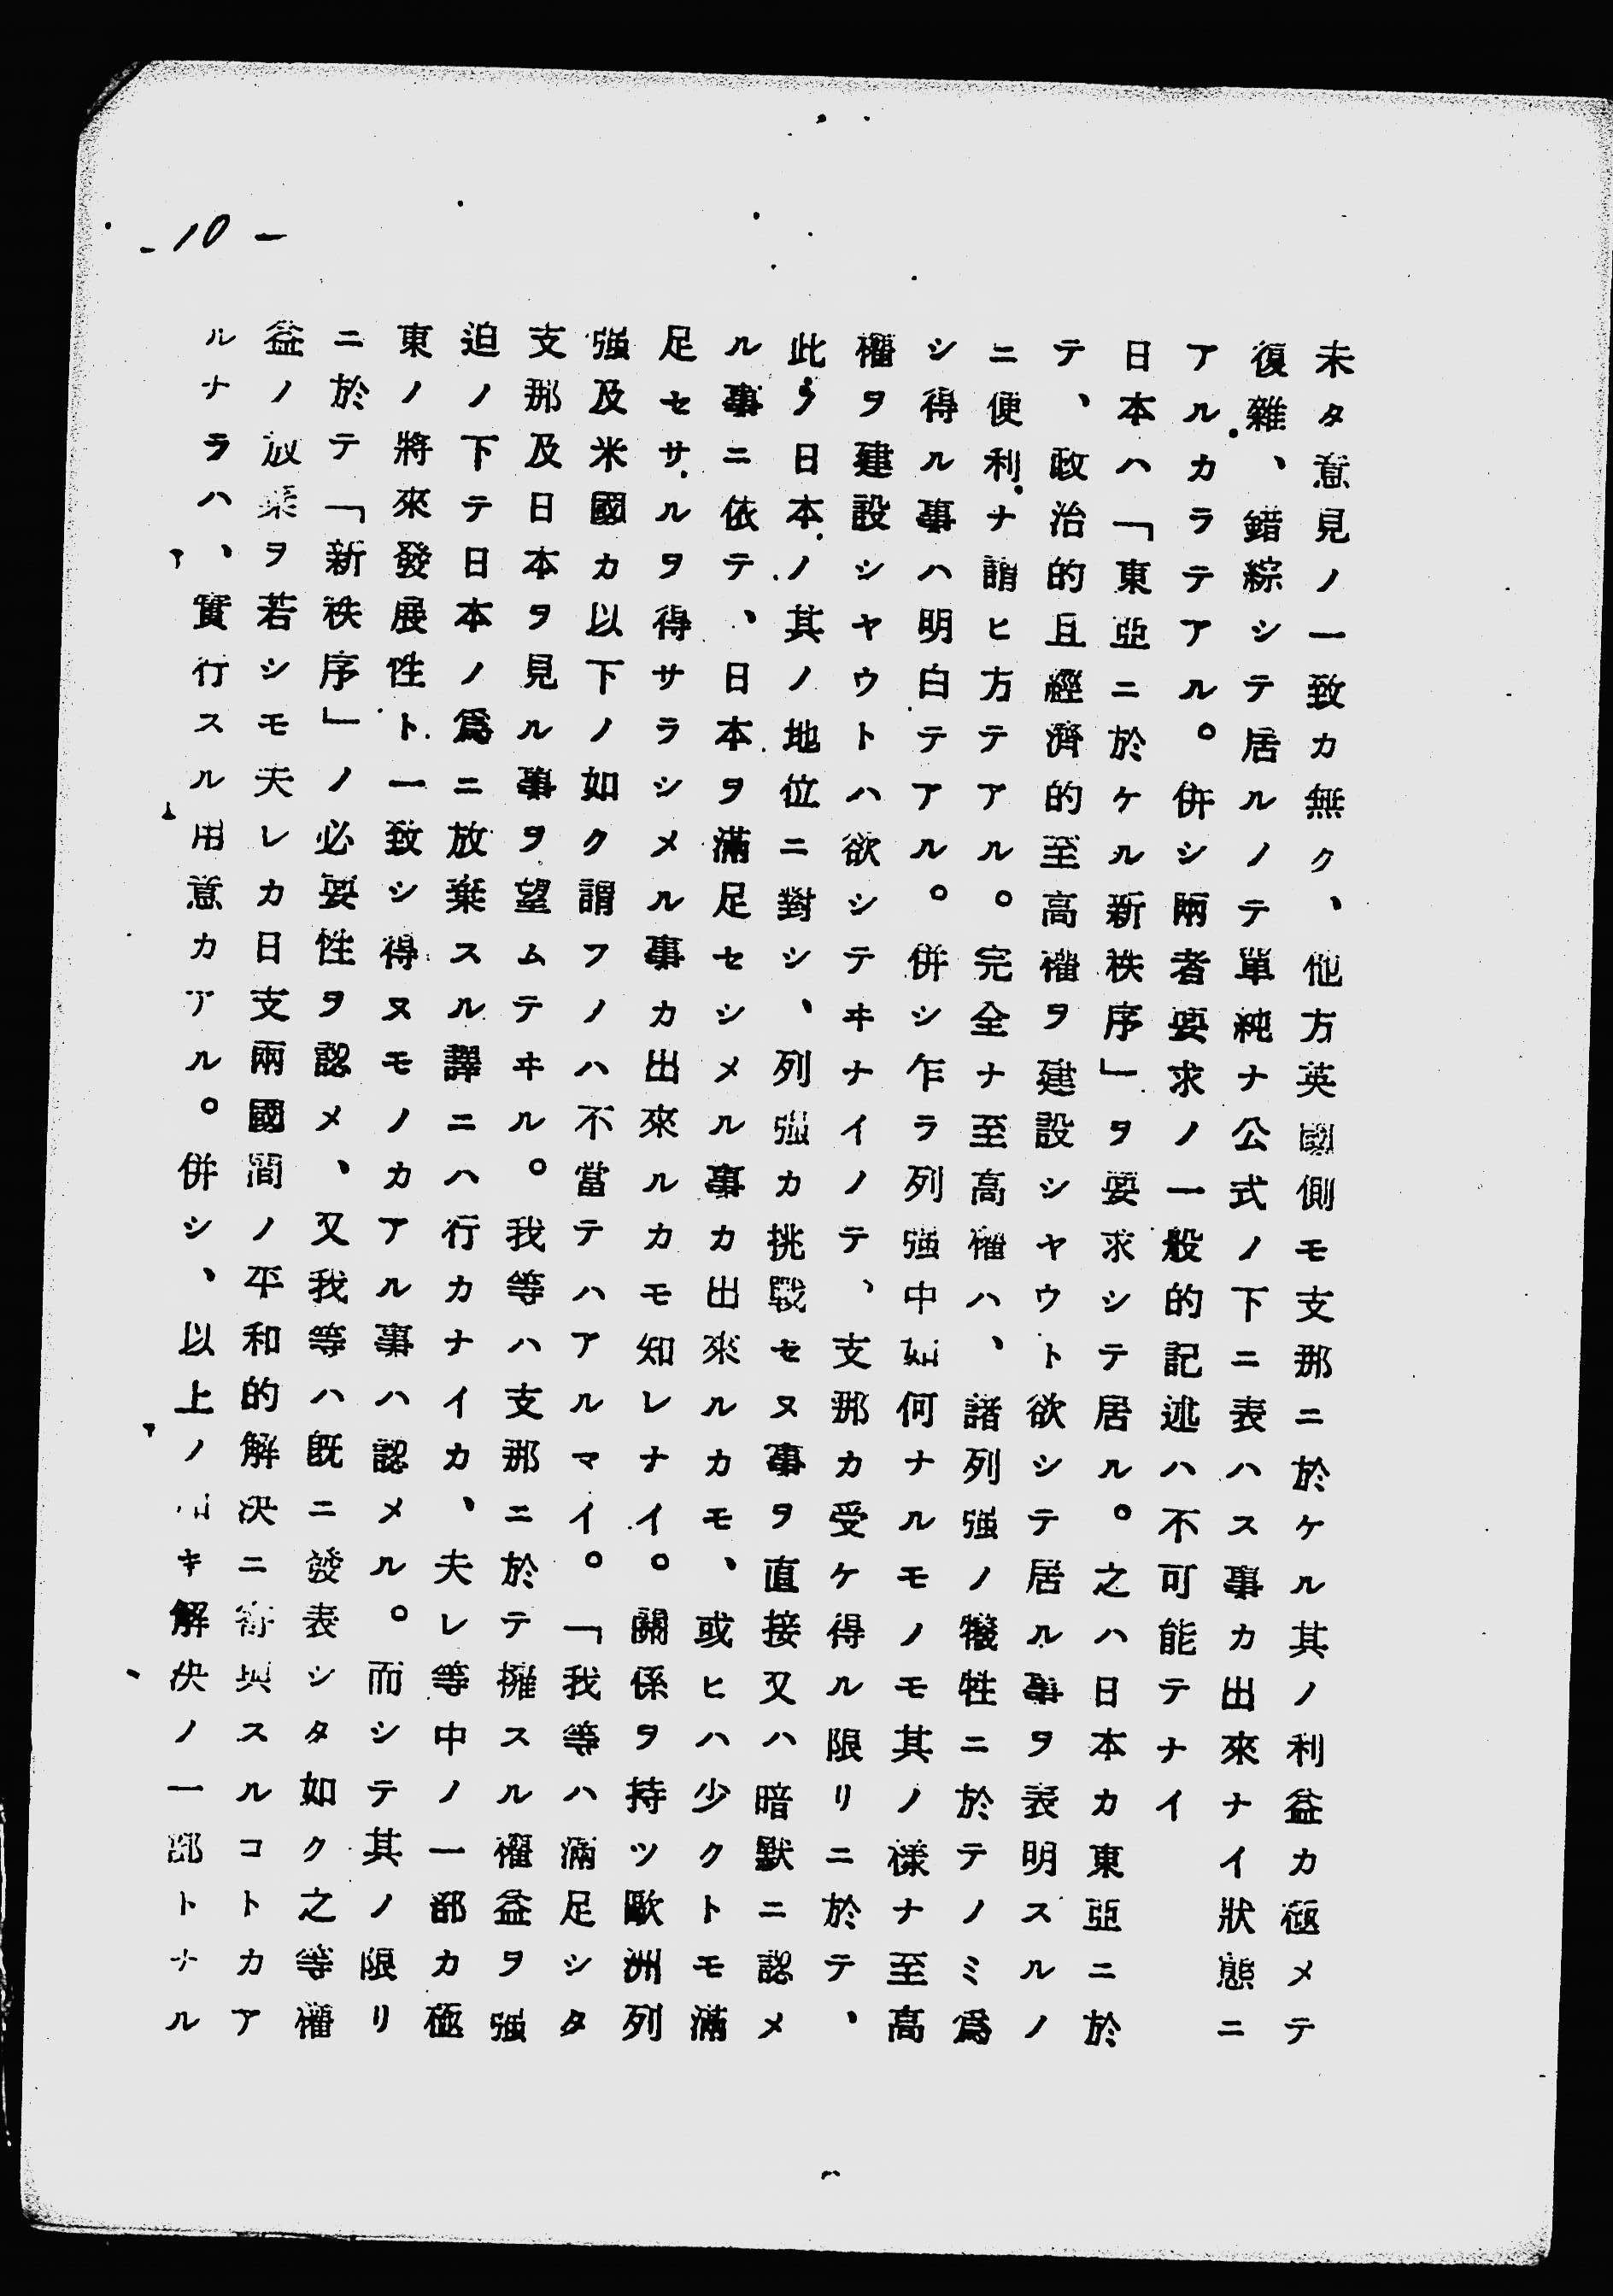 -10-
未タ意見ノ一致カ無ク、他方英國側モ支那ニ於ケル其ノ利益カ極メテ
復雜、錯綜シテ居ルノテ單純ナ公式ノ下ニ表ハス事カ出來ナイ狀態ニ
アルカラテアル。併シ兩者要求ノ一般的記述ハ不可能テナイ
日本ハ「東亞ニ於ケル新秩序」ヲ要求シテ居ル。之ハ日本カ東亞ニ於
テ、政治的且經濟的至高權ヲ建設シヤウト欲シテ居ル事ヲ表明スルノ
ニ便利ナ謂ヒ方テアル。完全ナ至高權ハ、諸列强ノ犧牲ニ於テノミ爲
シ得ル事ハ明白テアル。併シ乍ラ列强中如何ナルモノモ其ノ樣ナ至高
權ヲ建設シヤウトハ欲シテヰナイノテ、支那カ受ケ得ル限リニ於テ、
此ノ日本ノ其ノ地位ニ對シ、列强カ挑戰セヌ事ヲ直接又ハ暗默ニ認メ
ル事ニ依テ、日本ヲ滿足セシメル事カ出來ルカモ、或ヒハ少クトモ滿
足セサルヲ得サラシメル事カ出來ルカモ知レナイ。關係ヲ持ツ歐洲列
强及米國カ以下ノ如ク謂フノハ不當テハアルマイ。「我等ハ滿足シタ
支那及日本ヲ見ル事ヲ望ムテヰル。我等ハ支那ニ於テ擁スル權益ヲ强
迫ノ下テ日本ノ爲ニ放棄スル譯ニハ行カナイカ、夫レ等中ノ一部カ極
東ノ將來發展性ト一致シ得ヌモノカアル事ハ認メル。而シテ其ノ限リ
ニ於テ「新秩序」ノ必要性ヲ認メ、又我等ハ既ニ發表シタ如ク之等權
益ノ放棄ヲ若シモ夫レカ日支兩國間ノ平和的解決ニ寄與スルコトカア
ルナラハ、實行スル用意カアル。併シ、以上ノキ解決ノ一部トナル